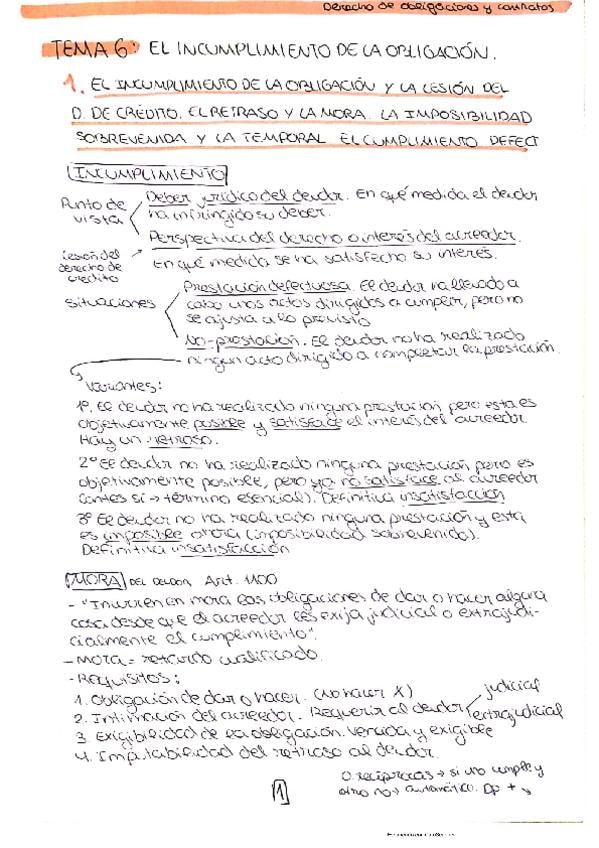 Derecho de obligaciones y contratos
TEMA 6: EL INCUMPLIMIENTO DE LA OBLIGACIÓN.
1. EL INCUMPLIMIENTO DE LA OBLIGACIÓN Y LA LESIÓN DEL
D. DE CRÉDITO. EL RETRASO Y LA MORA. LA IMPOSIBILIDAD
SOBREVENIDA Y LA TEMPORAL EL CUMPLIMIENTO DEFECT
INCUMPLIMIENTO
Punto de vista
Deber jurídico del deudor. En qué medida el deudor
ha infringido su deber.
Perspectiva del derecho o interés del acreedor.
En qué medida se ha satisfecho su interés.
Lesión del
derecho de
crédito
Situaciones
Prestación defectuosa. El deudor ha llevado a
cabo unos actos dirigidos a cumplir, pero no
se ajusta a lo previsto
No-prestación. El deudor no ha realizado
ningún acto dirigido a completar la prestación.
Variantes:
1º. El deudor no ha realizado ninguna prestación pero esta es
objetivamente posible y satisface el interés del acreedor
Hay un retraso.
2º El deudor no ha realizado ninguna prestación pero es
objetivamente posible, pero ya no satisface al acreedor
(antes sí → término esencial). Definitiva insatisfacción
3º El deudor no ha realizado ninguna prestación y esta
es imposible ahora (imposibilidad sobrevenida).
Definitiva insatisfacción
MORA DEL DEUDOR Art. 1100
- "Incurren en mora las obligaciones de dar o hacer alguna
cosa desde que el acreedor les exija judicial o extrajudi-
cialmente el cumplimiento".
- Mora = retardo cualificado.
- Requisitos:
1. Obligación de dar o hacer. (No hacer X)
2. Intimación del acreedor. Requerir al deudor
judicial
extrajudicial
3. Exigibilidad de la obligación. Vencida y exigible
4. Imputabilidad del retraso al deudor.
O. recíprocas → si uno cumple y
otro no → automático. Dp +
1